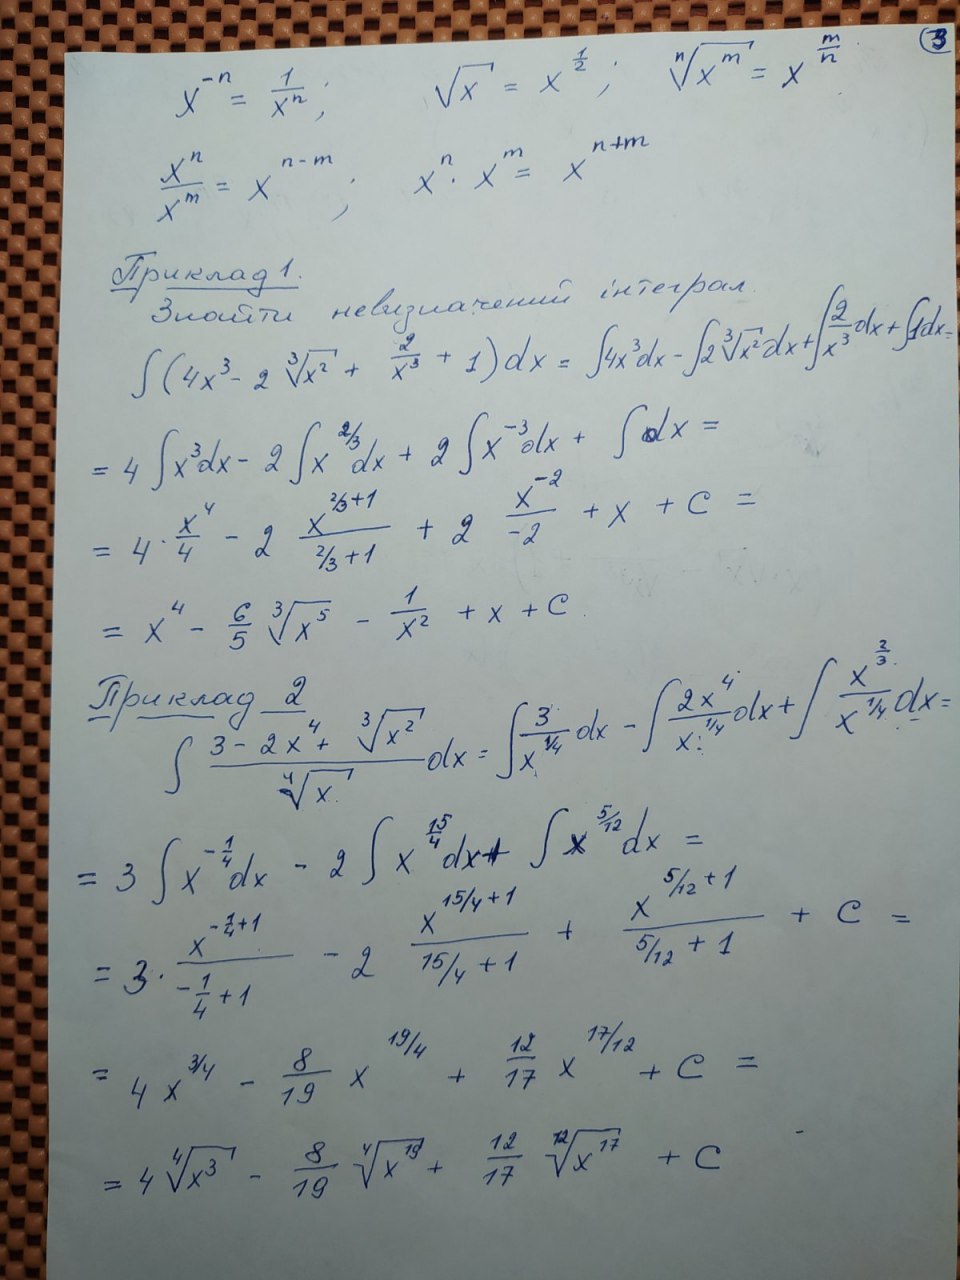 3
x⁻ⁿ = 1/xⁿ ; √x = x^(1/2) ; ⁿ√(x^m) = x^(m/n)
xⁿ/x^m = x^(n-m) ; xⁿ · x^m = x^(n+m)
Приклад 1.
Знайти невизначений інтеграл.
∫(4x³ - 2 ³√(x²) + 2/x³ + 1) dx = ∫4x³dx - ∫2 ³√(x²) dx + ∫2/x³ dx + ∫1dx =
= 4 ∫x³dx - 2 ∫x^(2/3) dx + 2 ∫x⁻³dx + ∫dx =
= 4 · x⁴/4 - 2 x^(2/3+1)/(2/3+1) + 2 x⁻²/-2 + x + C =
= x⁴ - 6/5 ³√(x⁵) - 1/x² + x + C
Приклад 2
∫ (3 - 2x⁴ + ³√(x²))/⁴√x dx = ∫3/x^(1/4) dx - ∫2x⁴/x^(1/4) dx + ∫x^(2/3)/x^(1/4) dx =
= 3 ∫x^(-1/4) dx - 2 ∫x^(15/4) dx + ∫x^(5/12) dx =
= 3 · x^(-1/4+1)/(-1/4+1) - 2 x^(15/4+1)/(15/4+1) + x^(5/12+1)/(5/12+1) + C =
= 4x^(3/4) - 8/19 x^(19/4) + 12/17 x^(17/12) + C =
= 4 ⁴√(x³) - 8/19 ⁴√(x¹⁹) + 12/17 ¹²√(x¹⁷) + C